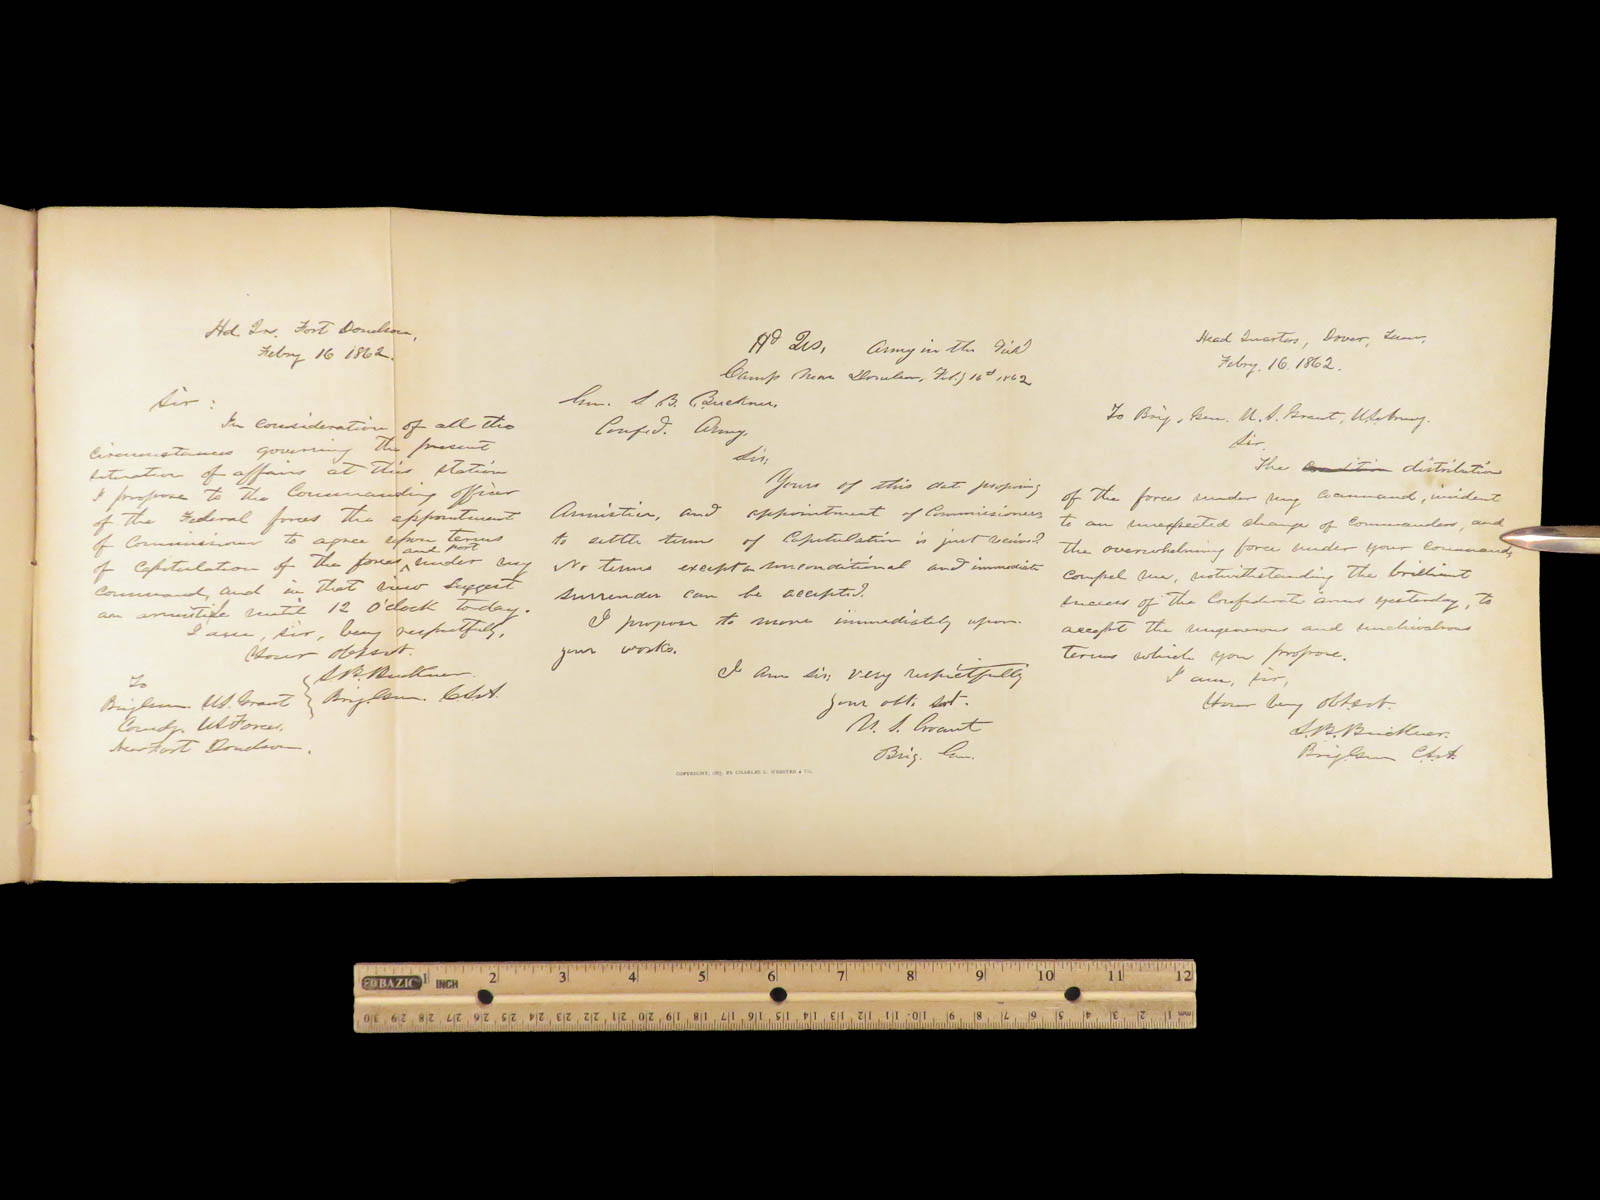 Hd. Qrs. Fort Donelson,
Febry 16 1862.
Sir:
In consideration of all the
circumstances governing the present
situation of affairs at this station
I propose to the Commanding officer
of the Federal forces the appointment
of Commissioners to agree upon terms
of capitulation of the forces and fort under my
command, and in that view suggest
an armistice until 12 o'clock to-day.
I am, sir, very respectfully,
Your obt svt.
S. B. Buckner.
Brig. Gen. C.S.A.
To
Brig Gen. U.S. Grant
Comdg. U.S. Forces,
Near Fort Donelson.
Hd Qrs, Army in the Field
Camp Near Donelson, Feby 16th 1862
Gen. S. B. Buckner,
Confed. Army,
Sir;
Yours of this date proposing
Armistice, and appointment of Commissioners
to settle terms of Capitulation is just received.
No terms except an unconditional and immediate
surrender can be accepted.
I propose to move immediately upon
your works.
I am sir, very respectfully
your obt. svt.
U. S. Grant
Brig. Gen.
COPYRIGHT, 1885, BY CHARLES L. WEBSTER & CO.
Head Quarters, Dover, Tenn,
Febry. 16 1862.
To Brig. Gen. U. S. Grant, U.S. Army.
Sir.
The distribution
of the forces under my command, incident
to an unexpected change of commanders, and
the overwhelming force under your command,
compel me, notwithstanding the brilliant
success of the Confederate arms yesterday, to
accept the ungenerous and unchivalrous
terms which you propose.
I am, sir,
Your very obt svt.
S. B. Buckner.
Brig. Gen C.S.A.
BAZIC 1 INCH 2 3 4 5 6 7 8 9 10 11 12
30 29 28 27 26 25 24 23 22 21 20 19 18 17 16 15 14 13 12 11 10 9 8 7 6 5 4 3 2 1 mm